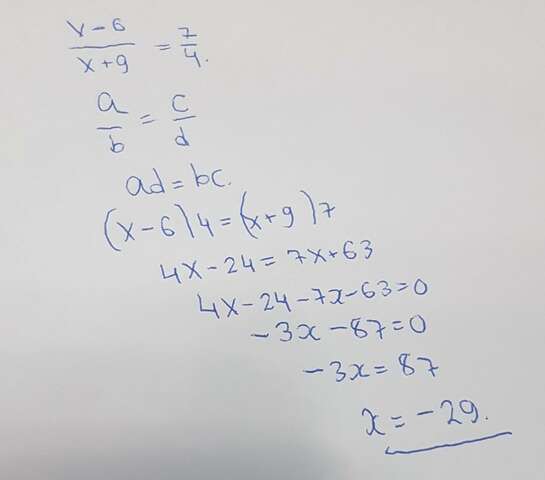 x-6/x+9 = 7/4.
a/b = c/d
ad = bc.
(x-6)4 = (x+9)7
4x-24 = 7x+63
4x-24-7x-63=0
-3x-87=0
-3x = 87
x = -29.